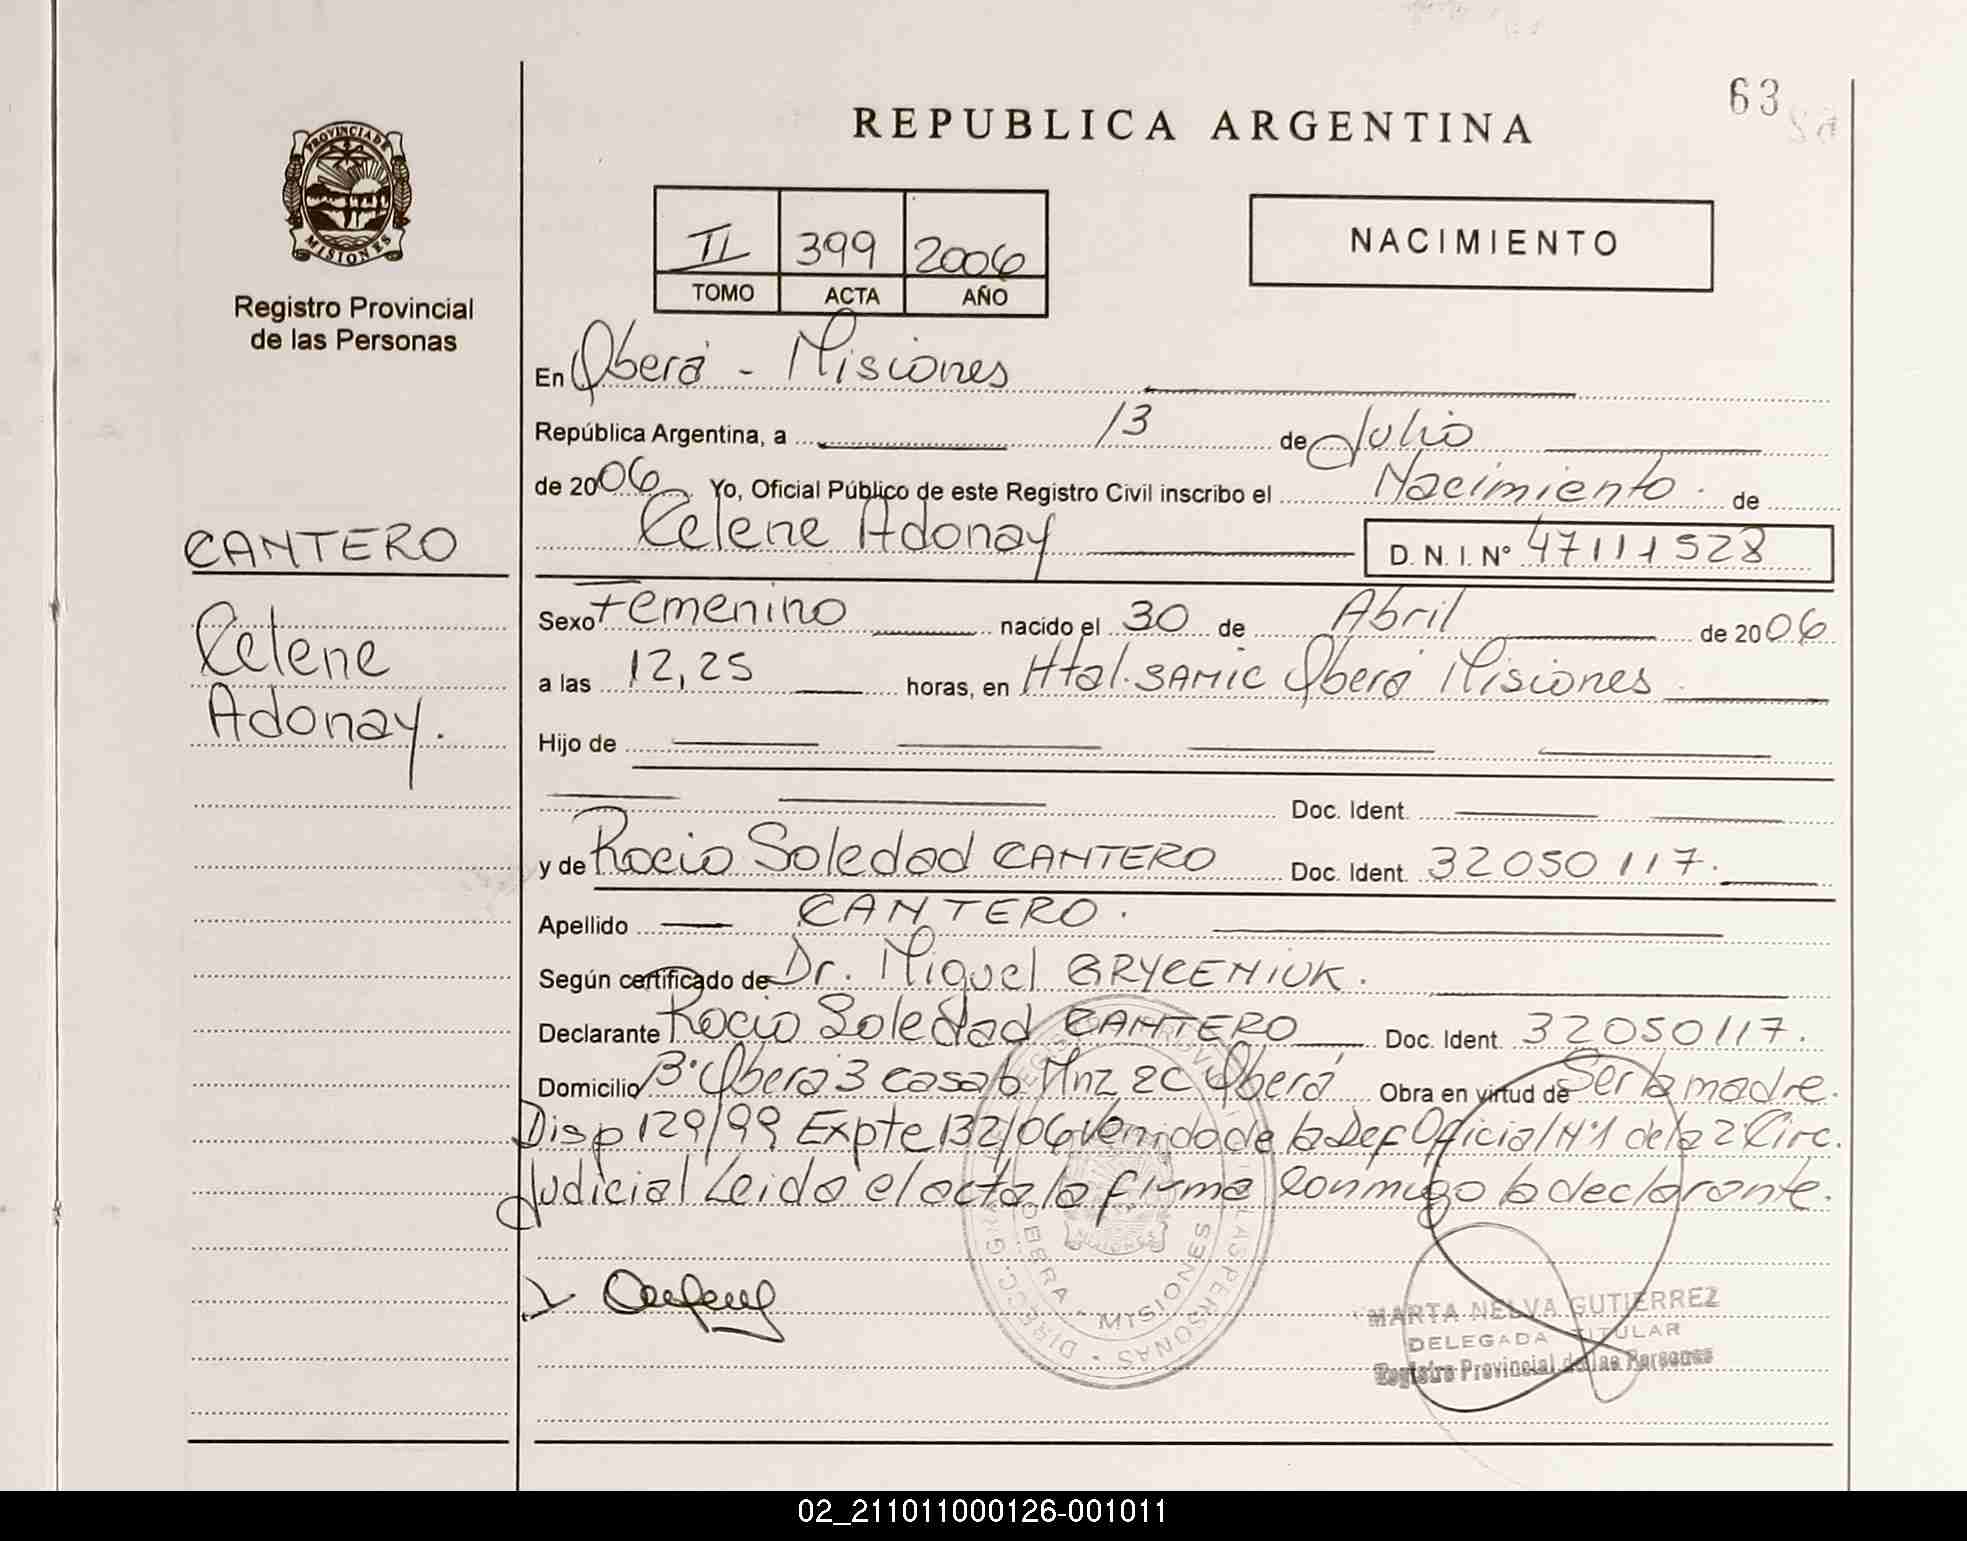 63
REPUBLICA ARGENTINA
PROVINCIA DE
MISIONES
Registro Provincial
de las Personas
II 399 2006
TOMO ACTA AÑO
NACIMIENTO
En Oberá - Misiones
República Argentina, a 13 de Julio
de 2006 Yo, Oficial Público de este Registro Civil inscribo el Nacimiento de
Celene Adonay D. N. I. N° 47111528
CANTERO
Celene
Adonay.
Sexo Femenino nacido el 30 de Abril de 2006
a las 12,25 horas, en Htal. SAMIC Oberá Misiones
Hijo de
Doc. Ident.
y de Rocio Soledad CANTERO Doc. Ident. 32050117.
Apellido CANTERO.
Según certificado de Dr. Miguel GRYCENIUK.
Declarante Rocio Soledad CANTERO Doc. Ident. 32050117.
Domicilio B° Oberá 3 casa 6 Mnz 2C Oberá Obra en virtud de Ser la madre.
Disp 129/99 Expte 132/06 Venido de la Def Oficial N°1 de la 2° Circ.
Judicial Leida el acta la firma conmigo la declarante.
OBERA - MISIONES
MARTA NELVA GUTIERREZ
DELEGADA TITULAR
Registro Provincial de las Personas
02_211011000126-001011